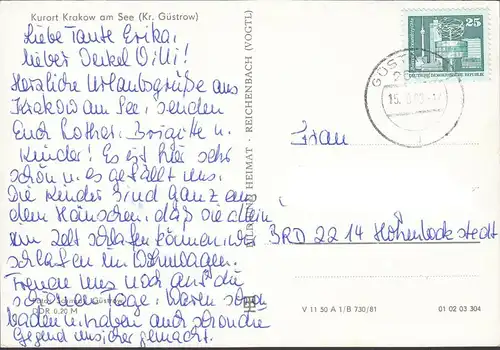 Kurort Krakow am See (Kr. Güstrow)
Liebe Tante Erika,
lieber Onkel Willi!
Herzliche Urlaubsgrüße aus
Krakow am See, senden
Euch Lothar, Brigitte u.
Kinder! Es ist hier sehr
schön u. es gefällt uns.
Die Kinder sind ganz aus
dem Häuschen, daß sie allein
im Zelt schlafen können, wir
schlafen im Wohnwagen.
Freuen uns noch auf die
schönen Tage. Waren schon
baden u. haben auch schon die
Gegend unsicher gemacht.
Güstrow
DDR 0,20 M
BILD UND HEIMAT · REICHENBACH (VOGTL)
25
DEUTSCHE DEMOKRATISCHE REPUBLIK
GÜST
Frau
BRD 2214 Hohenlockstedt
V 11 50 A 1/B 730/81
01 02 03 304